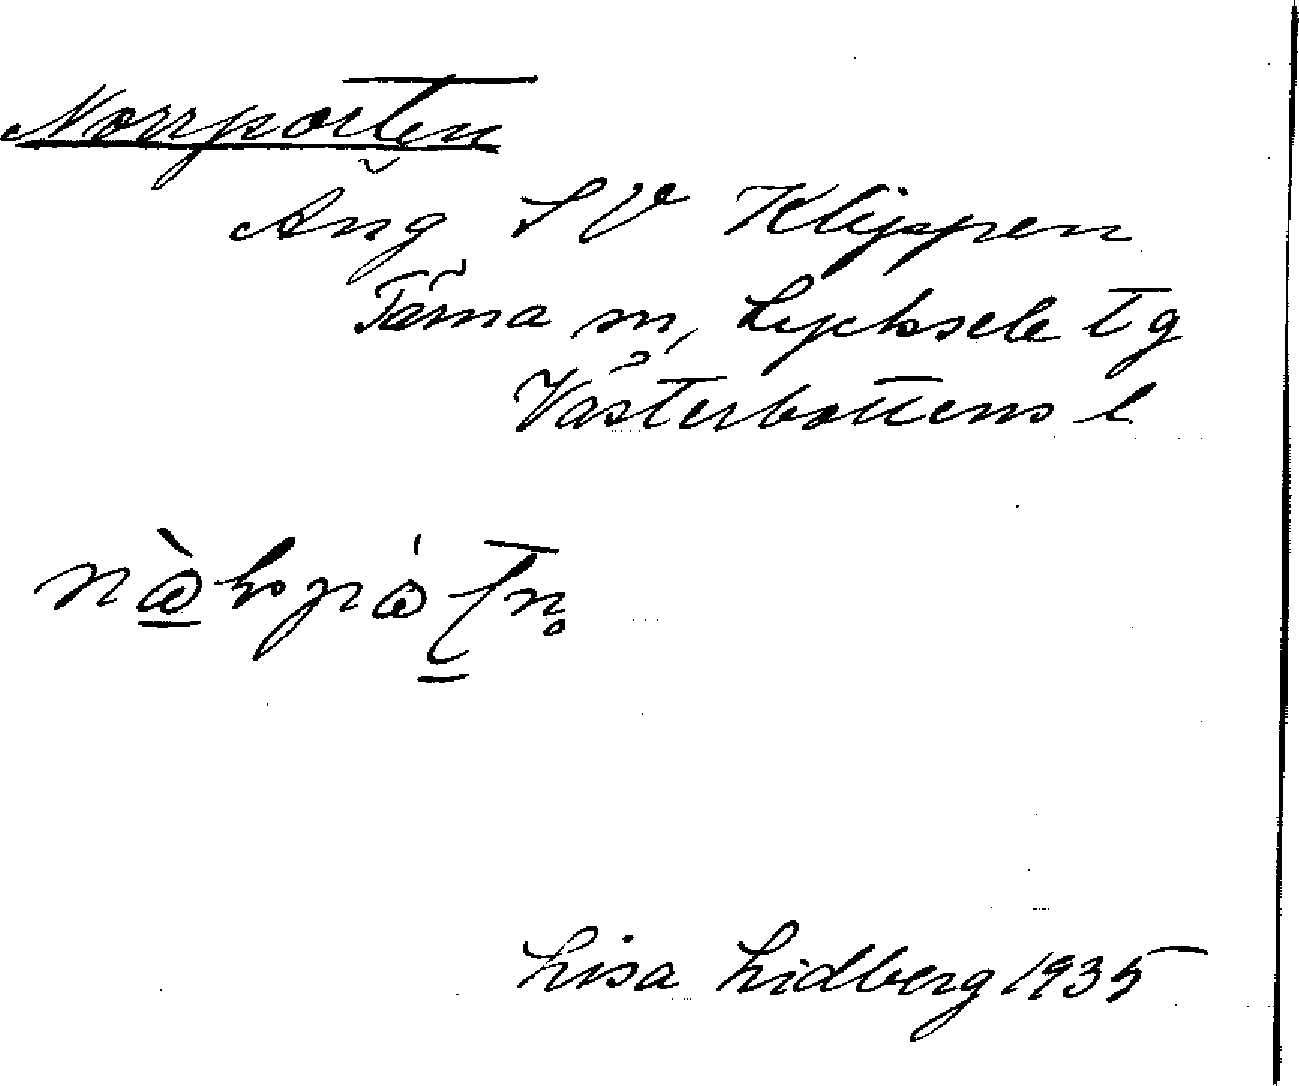 Norrporten
Äng SV Klippen
Tärna sn, Lycksele tg
Västerbottens l.
Lisa Lidberg 1935